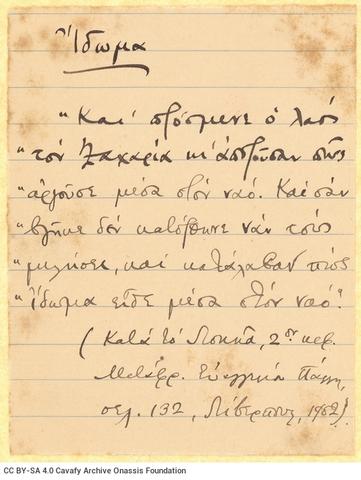 Ἴδωμα
"Και πρόσμενε ὁ λαός
"τον Ζαχαρία κι' ἀπορούσαν πῶς
"ἀργοῦσε μέσα στὸν ναό. Και σὰν
"βγῆκε δὲν κατόρθωνε νὰν τοὺς
"μιλήσει, καὶ κατάλαβαν πῶς
"Ἴδωμα εἶδε μέσα στὸν ναό".
(Κατά τὸ Λουκᾶ, 2ον κεφ.
Μετάφρ. Πάλλη,
σελ. 132, Λίβερπουλ, 1902).
CC BY-SA 4.0 Cavafy Archive Onassis Foundation